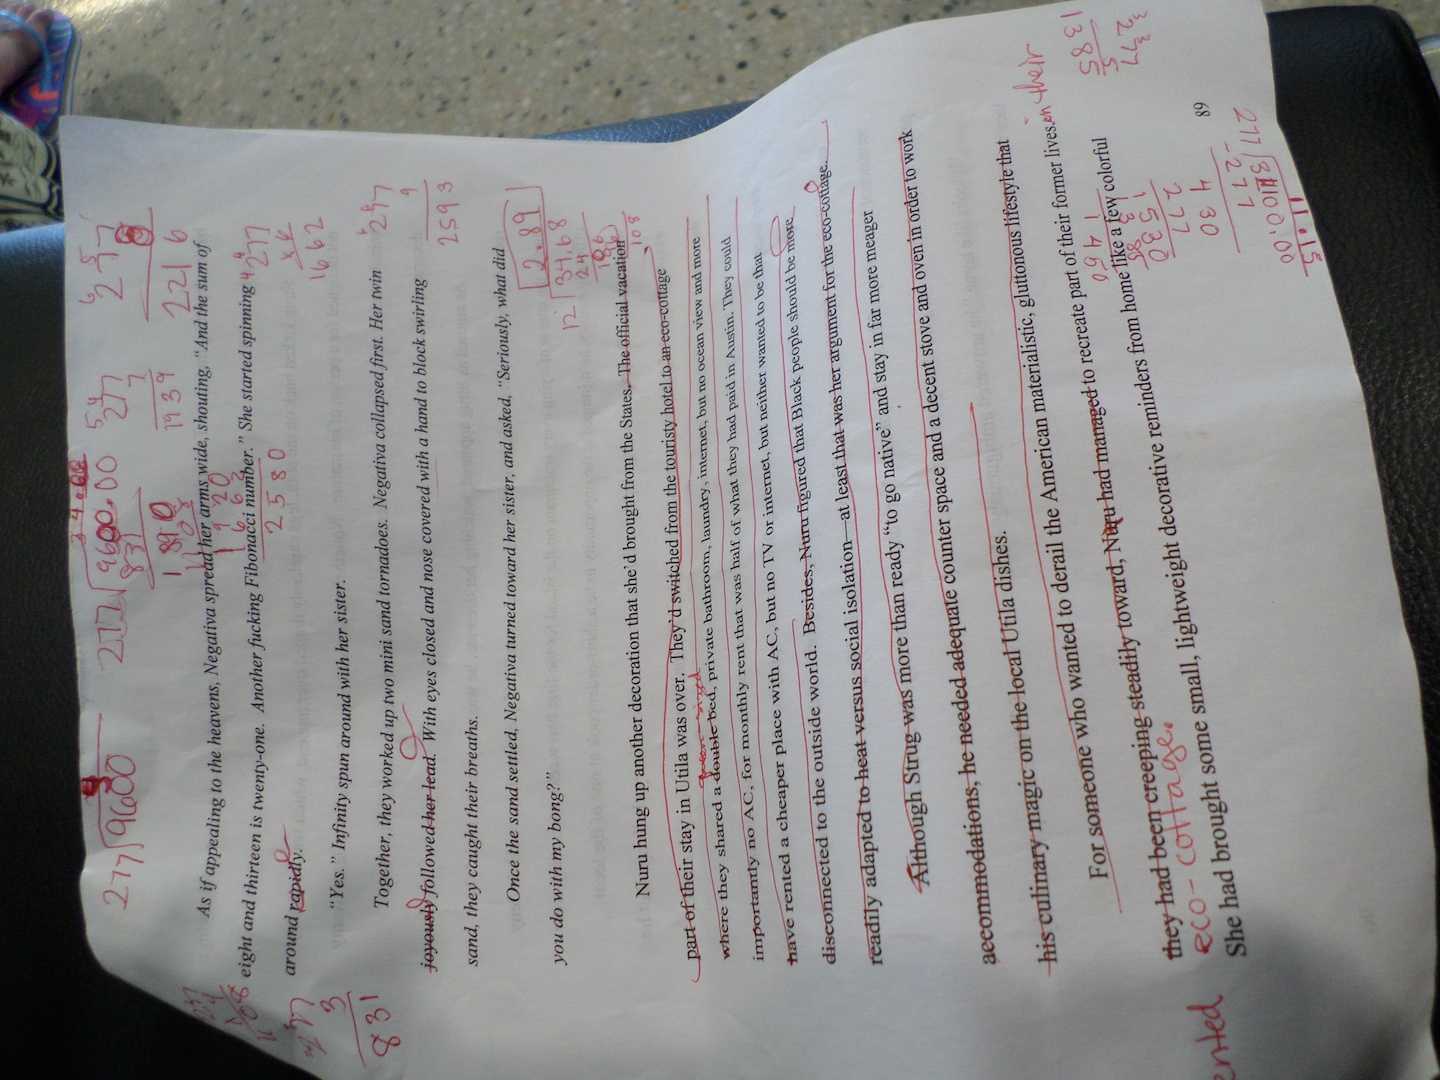 277 9600
277 9600.00
34.66
277
7
1939
257
8
2216
As if appealing to the heavens, Negativa spread her arms wide, shouting, “And the sum of
eight and thirteen is twenty-one. Another fucking Fibonacci number.” She started spinning
around rapidly.
277
x6
1662
2580
“Yes.” Infinity spun around with her sister.
277
3
831
Together, they worked up two mini sand tornadoes. Negativa collapsed first. Her twin
277
9
2593
joyously followed her lead. With eyes closed and nose covered with a hand to block swirling
sand, they caught their breaths.
Once the sand settled, Negativa turned toward her sister, and asked, “Seriously, what did
you do with my bong?”
2.89
12 34.68
24
108
Nuru hung up another decoration that she’d brought from the States. The official vacation
part of their stay in Utila was over. They’d switched from the touristy hotel to an eco-cottage
queen-sized
where they shared a double bed, private bathroom, laundry, internet, but no ocean view and more
importantly no AC, for monthly rent that was half of what they had paid in Austin. They could
have rented a cheaper place with AC, but no TV or internet, but neither wanted to be that
disconnected to the outside world. Besides, Nuru figured that Black people should be more
readily adapted to heat versus social isolation—at least that was her argument for the eco-cottage.
Although Strug was more than ready “to go native” and stay in far more meager
accommodations, he needed adequate counter space and a decent stove and oven in order to work
his culinary magic on the local Utila dishes.
For someone who wanted to derail the American materialistic, gluttonous lifestyle that
they had been creeping steadily toward, Nuru had managed to recreate part of their former lives.
in their
eco-cottage.
She had brought some small, lightweight decorative reminders from home like a few colorful
89
277
5
1385
277 3100.00
-277
430
277
1530
1385
1450
11.15